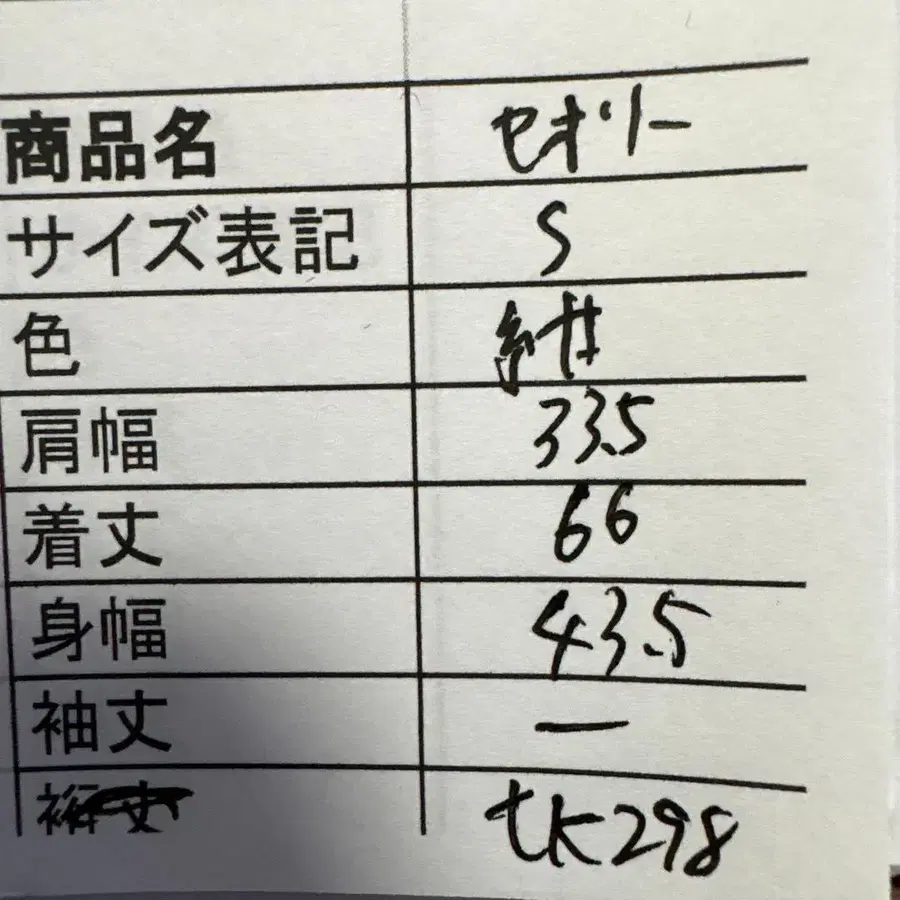 商品名 セオリー
サイズ表記 S
色 紺
肩幅 33.5
着丈 66
身幅 43.5
袖丈 ー
裄丈 tK298